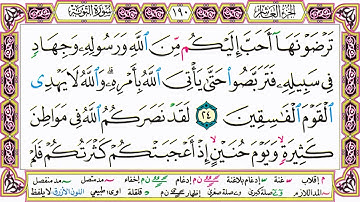 الجزء العاشر ١٩٠ سورة التوبة
تَرْضَوْنَهَآ أَحَبَّ إِلَيْكُم مِّنَ ٱللَّهِ وَرَسُولِهِۦ وَجِهَادٍ
فِي سَبِيلِهِۦ فَتَرَبَّصُوا۟ حَتَّىٰ يَأْتِيَ ٱللَّهُ بِأَمْرِهِۦ ۗ وَٱللَّهُ لَا يَهْدِى
ٱلْقَوْمَ ٱلْفَٰسِقِينَ ٢٤ لَقَدْ نَصَرَكُمُ ٱللَّهُ فِى مَوَاطِنَ
كَثِيرَةٍ ۙ وَيَوْمَ حُنَيْنٍ ۙ إِذْ أَعْجَبَتْكُمْ كَثْرَتُكُمْ فَلَمْ